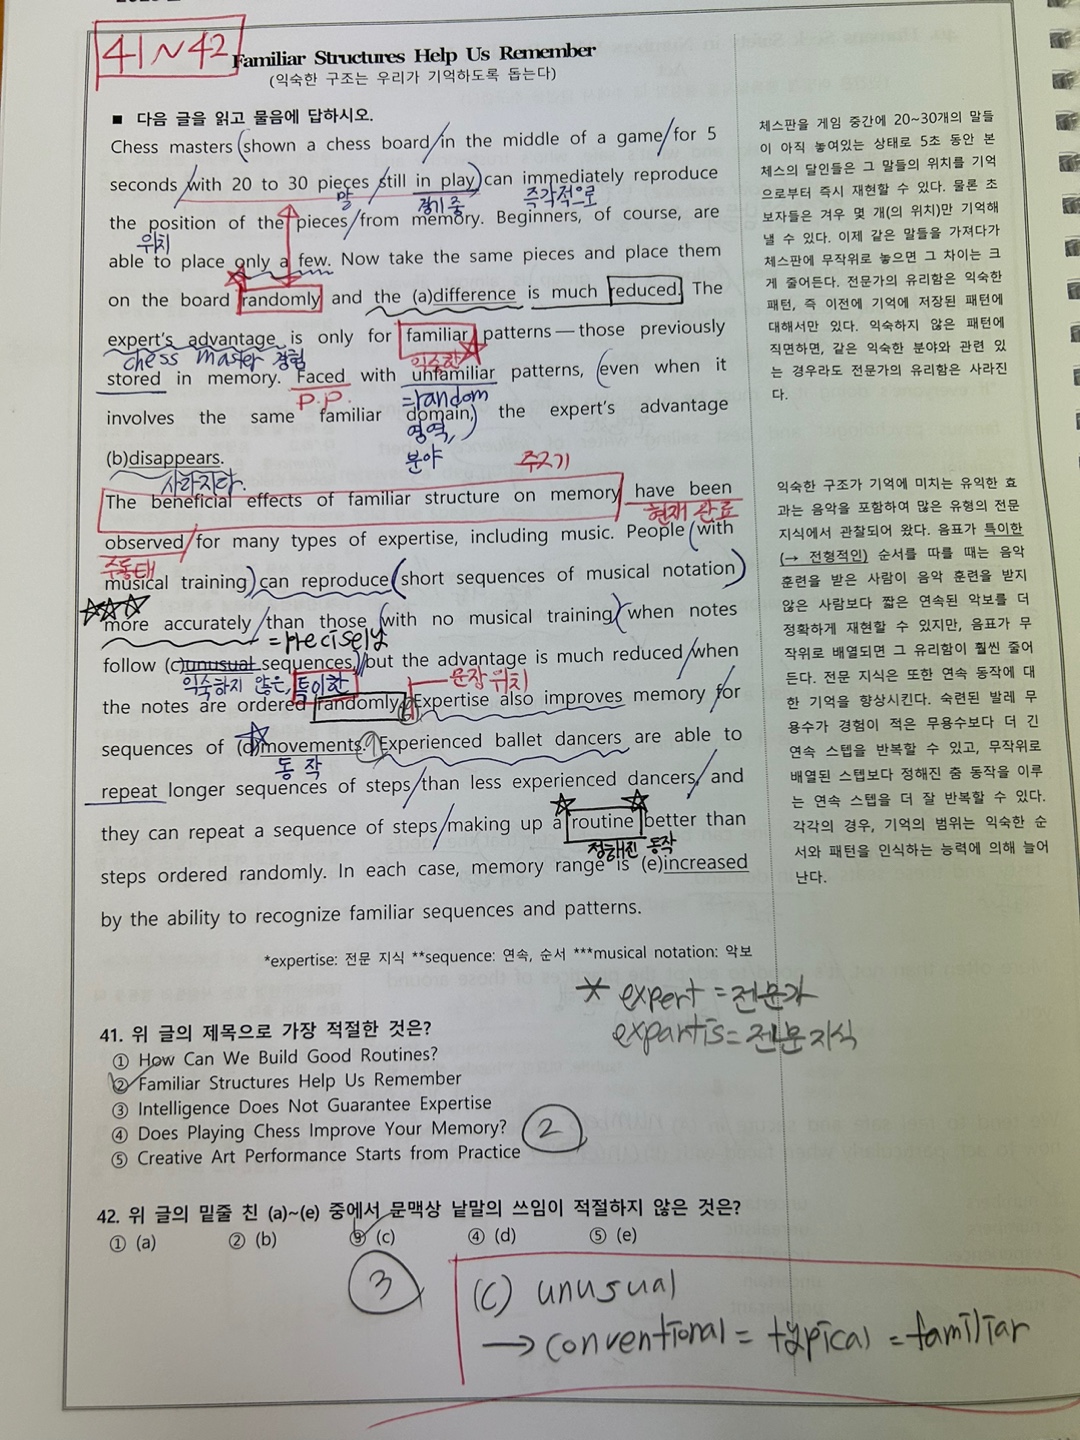 41~42
Familiar Structures Help Us Remember
(익숙한 구조는 우리가 기억하도록 돕는다)
■ 다음 글을 읽고 물음에 답하시오.
Chess masters shown a chess board in the middle of a game for 5
seconds with 20 to 30 pieces still in play can immediately reproduce
말 경기 중 즉각적으로
the position of the pieces from memory. Beginners, of course, are
위치
able to place only a few. Now take the same pieces and place them
on the board randomly and the (a)difference is much reduced. The
expert's advantage is only for familiar patterns — those previously
chess master 경험 익숙한
stored in memory. Faced with unfamiliar patterns, even when it
P.P. =random
involves the same familiar domain, the expert's advantage
영역,
분야
(b)disappears.
사라지다.
주고기
The beneficial effects of familiar structure on memory have been
현재 완료
observed for many types of expertise, including music. People with
수동태
musical training can reproduce short sequences of musical notation
more accurately than those with no musical training when notes
=precisely
follow (c)unusual sequences, but the advantage is much reduced when
익숙하지 않은, 특이한 문장 위치
the notes are ordered randomly. Expertise also improves memory for
sequences of (d)movements. Experienced ballet dancers are able to
동작
repeat longer sequences of steps than less experienced dancers, and
they can repeat a sequence of steps making up a routine better than
정해진 동작
steps ordered randomly. In each case, memory range is (e)increased
by the ability to recognize familiar sequences and patterns.
*expertise: 전문 지식 **sequence: 연속, 순서 ***musical notation: 악보
* expert = 전문가
expartis = 전문지식
41. 위 글의 제목으로 가장 적절한 것은?
① How Can We Build Good Routines?
② Familiar Structures Help Us Remember
③ Intelligence Does Not Guarantee Expertise
④ Does Playing Chess Improve Your Memory?
⑤ Creative Art Performance Starts from Practice
②
42. 위 글의 밑줄 친 (a)~(e) 중에서 문맥상 낱말의 쓰임이 적절하지 않은 것은?
① (a) ② (b) ③ (c) ④ (d) ⑤ (e)
③
(C) unusual
→ conventional = typical = familiar
체스판을 게임 중간에 20~30개의 말들
이 아직 놓여있는 상태로 5초 동안 본
체스의 달인들은 그 말들의 위치를 기억
으로부터 즉시 재현할 수 있다. 물론 초
보자들은 겨우 몇 개(의 위치)만 기억해
낼 수 있다. 이제 같은 말들을 가져다가
체스판에 무작위로 놓으면 그 차이는 크
게 줄어든다. 전문가의 유리함은 익숙한
패턴, 즉 이전에 기억에 저장된 패턴에
대해서만 있다. 익숙하지 않은 패턴에
직면하면, 같은 익숙한 분야와 관련 있
는 경우라도 전문가의 유리함은 사라진
다.
익숙한 구조가 기억에 미치는 유익한 효
과는 음악을 포함하여 많은 유형의 전문
지식에서 관찰되어 왔다. 음표가 특이한
(→ 전형적인) 순서를 따를 때는 음악
훈련을 받은 사람이 음악 훈련을 받지
않은 사람보다 짧은 연속된 악보를 더
정확하게 재현할 수 있지만, 음표가 무
작위로 배열되면 그 유리함이 훨씬 줄어
든다. 전문 지식은 또한 연속 동작에 대
한 기억을 향상시킨다. 숙련된 발레 무
용수가 경험이 적은 무용수보다 더 긴
연속 스텝을 반복할 수 있고, 무작위로
배열된 스텝보다 정해진 춤 동작을 이루
는 연속 스텝을 더 잘 반복할 수 있다.
각각의 경우, 기억의 범위는 익숙한 순
서와 패턴을 인식하는 능력에 의해 늘어
난다.